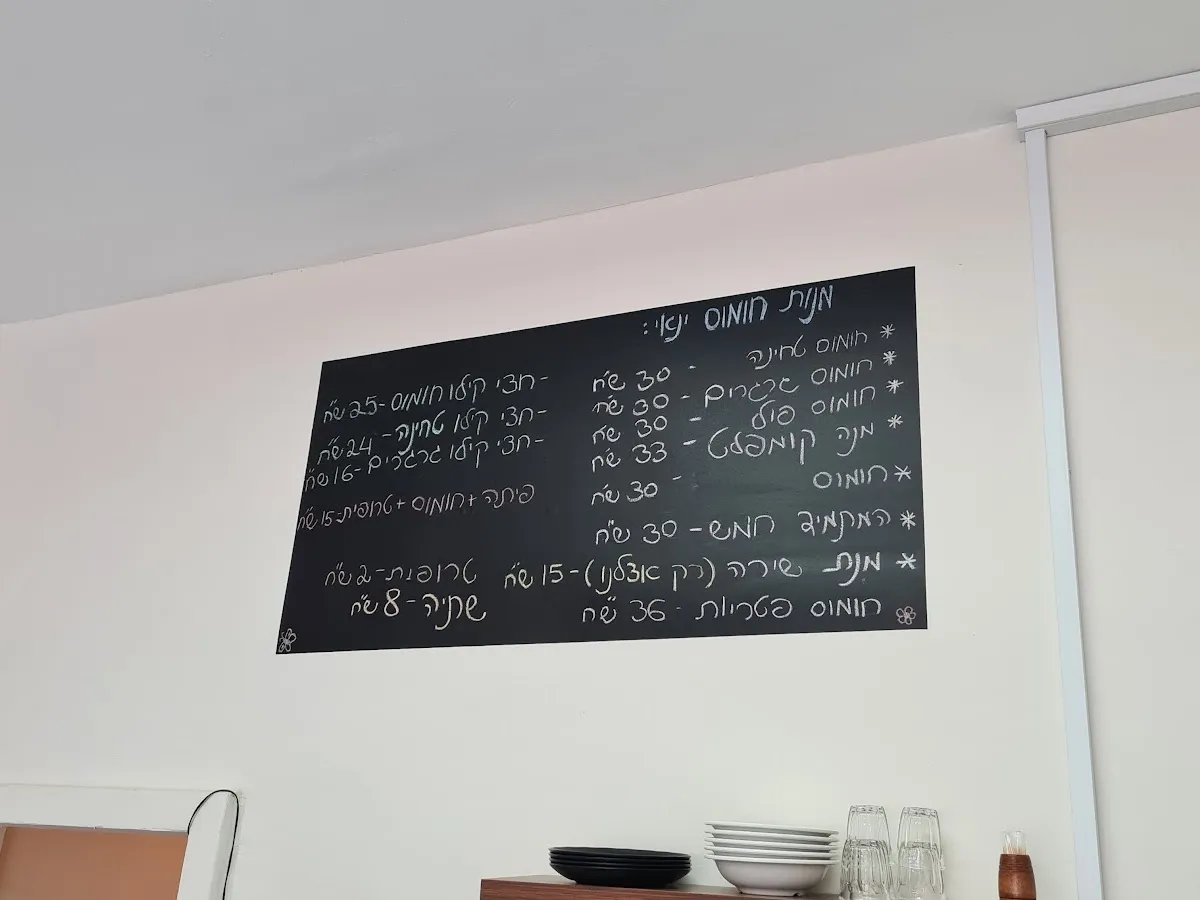 מנות חומוס ינאי:
* חומוס טחינה - 30 ש"ח
* חומוס גרגרים - 30 ש"ח
* חומוס פול - 30 ש"ח
* מנה קומפלט - 33 ש"ח
* חומוס - 30 ש"ח
* המקמיד חמש - 30 ש"ח
* מנת שירה (רק אצלנו) - 15 ש"ח
חומוס פטריות - 36 ש"ח
- חצי קילו חומוס - 25 ש"ח
- חצי קילו טחינה - 24 ש"ח
- חצי קילו גרגרים - 16 ש"ח
פיתה + חומוס + טרופית - 15 ש"ח
טרופית - 2 ש"ח
שתיה - 8 ש"ח